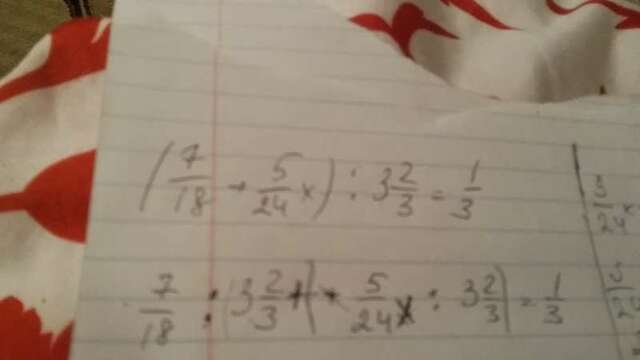 (7/18 + 5/24 x) : 3 2/3 = 1/3
7/18 : (3 2/3) + 5/24 x : 3 2/3) = 1/3
5/24 x